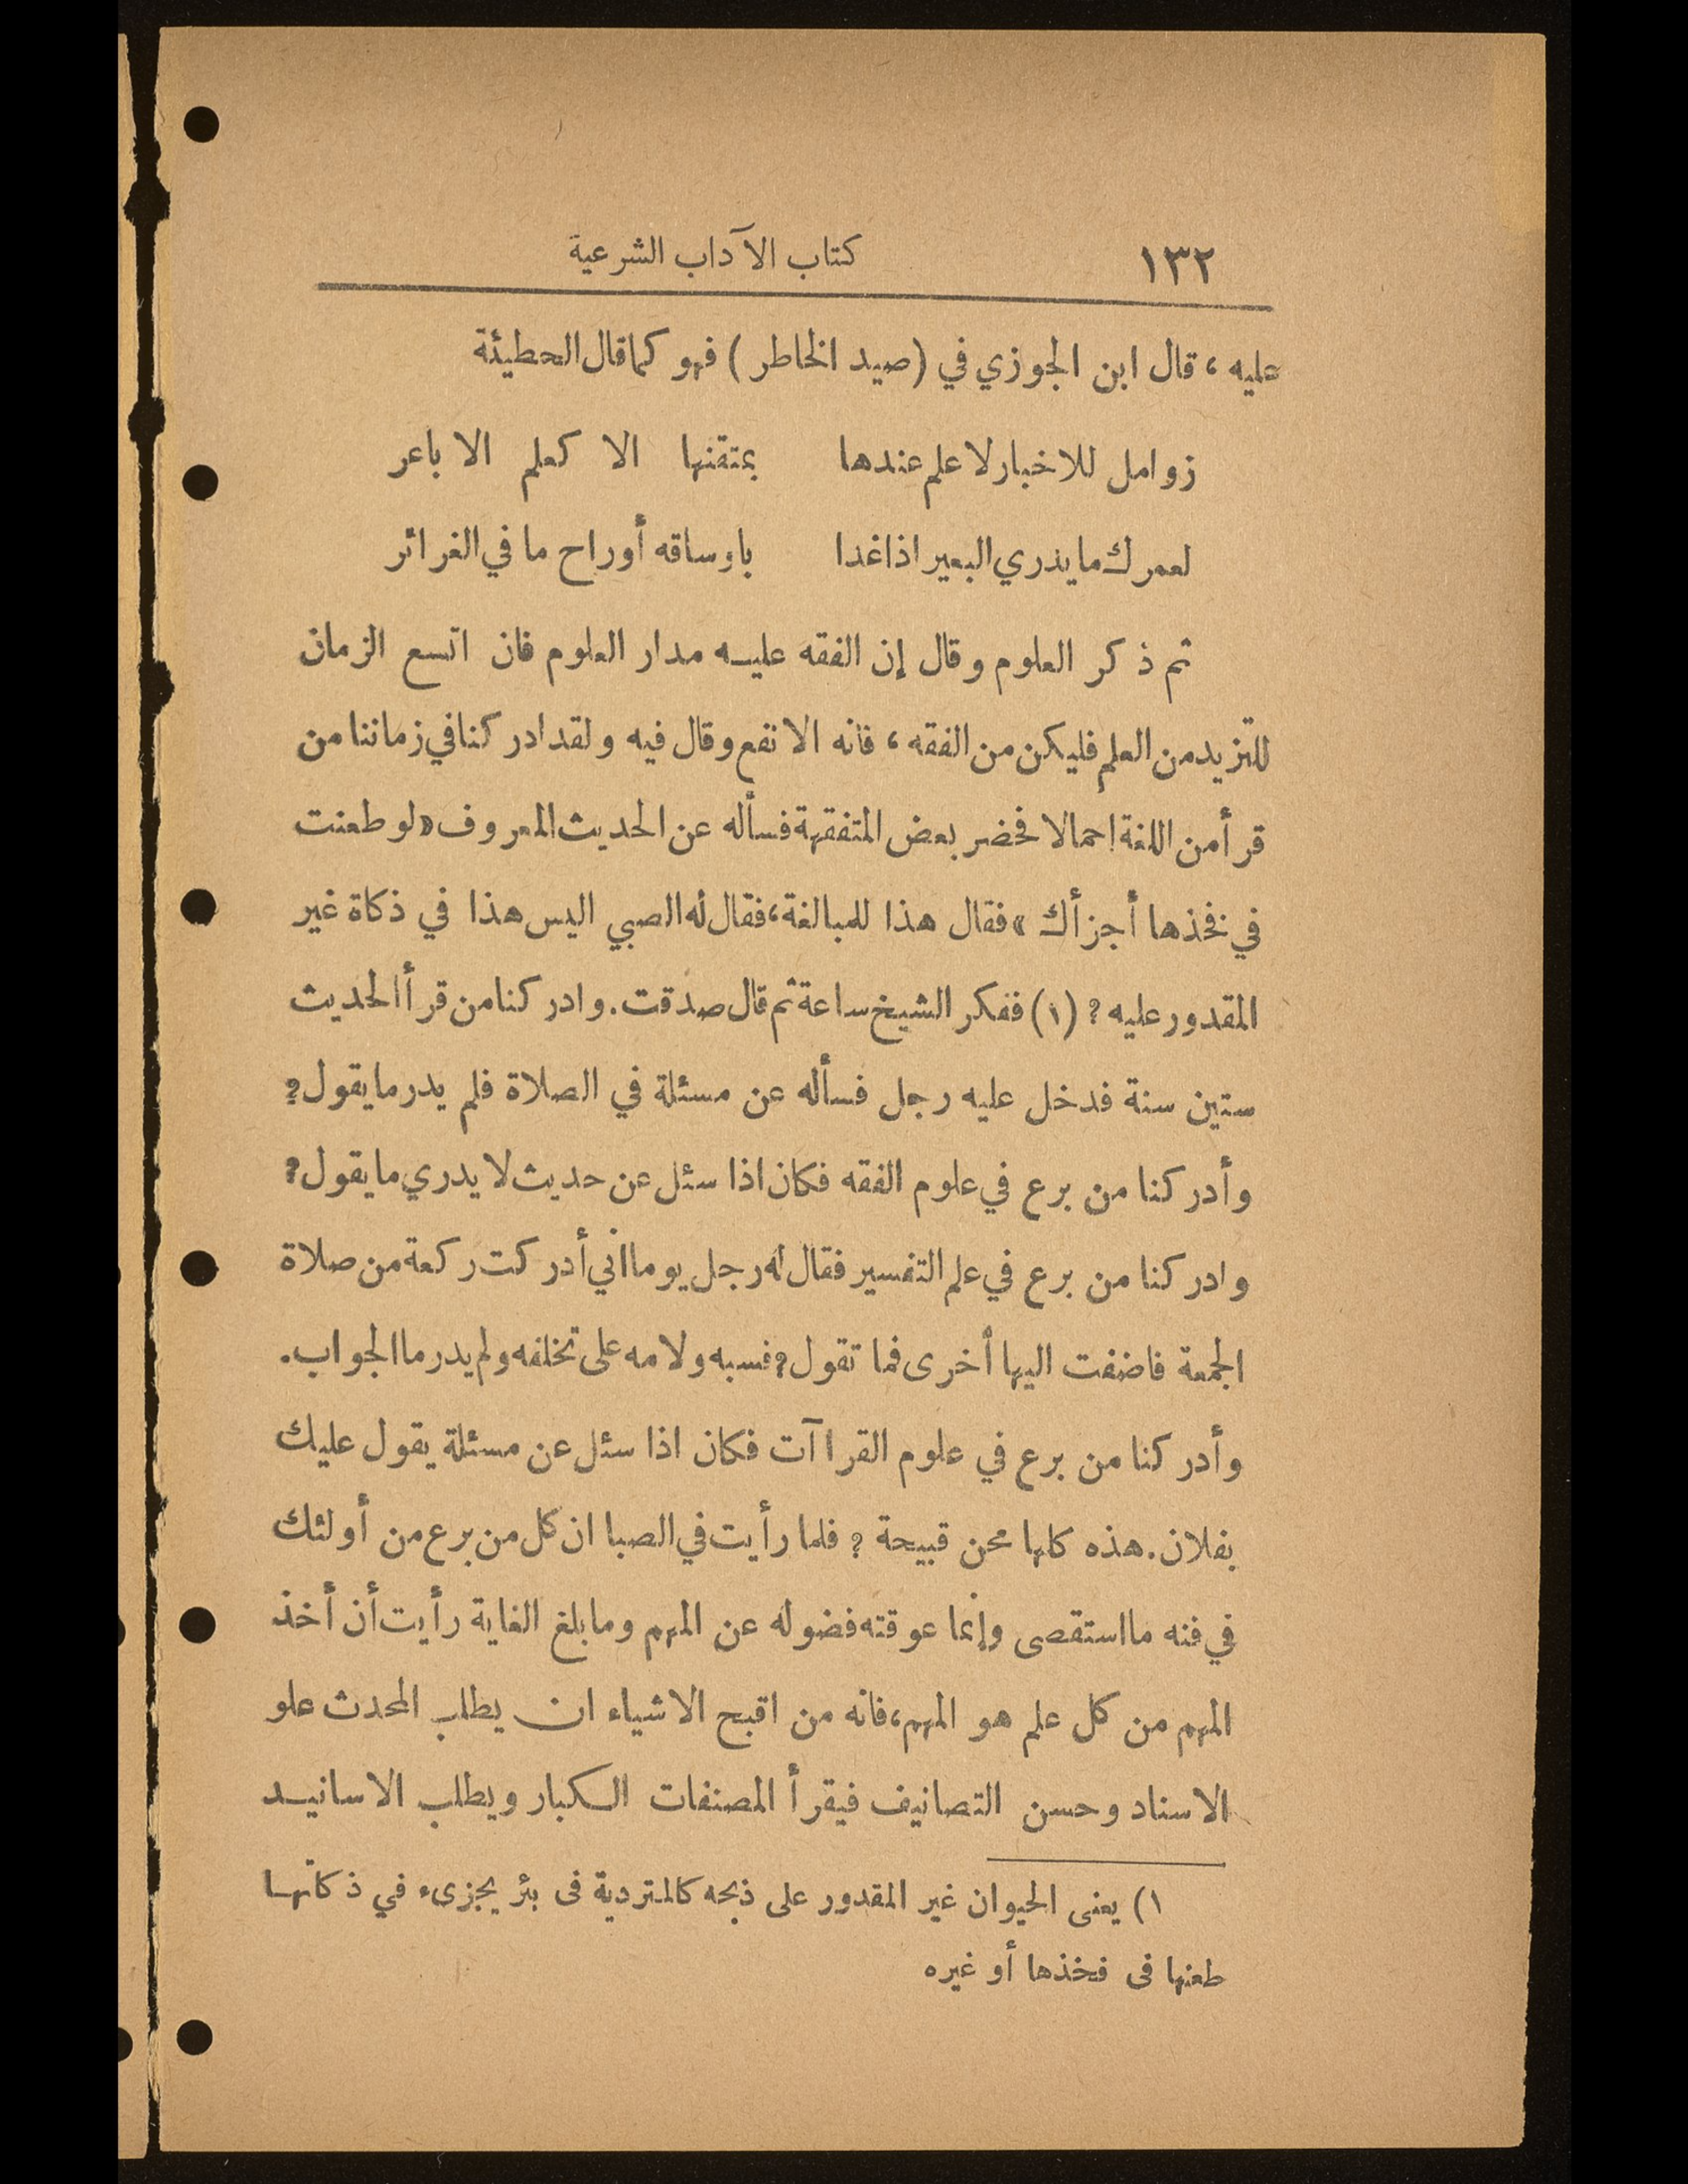 ١٣٢ كتاب الآداب الشرعية
عليه ، قال ابن الجوزي في (صيد الخاطر) فهو كما قال الحطيئة
زوامل للاخبار لا علم عندها بمتقنها الا كعلم الا باعر
لعمرك ما يدري البعير اذا غدا باوساقه أوراح ما في الغرائر
ثم ذكر العلوم وقال إن الفقه عليه مدار العلوم فان اتسع الزمان
للتزيد من العلم فليكن من الفقه ، فانه الانفع وقال فيه ولقد ادركنا في زماننا من
قرأ من اللغة احمالا فحضر بعض المتفقهة فسأله عن الحديث المعروف «لو طعنت
في فخذها أجزأك» فقال هذا للمبالغة، فقال له الصبي اليس هذا في ذكاة غير
المقدور عليه ؟ (١) ففكر الشيخ ساعة ثم قال صدقت. وادركنا من قرأ الحديث
ستين سنة فدخل عليه رجل فسأله عن مسئلة في الصلاة فلم يدر ما يقول؟
وأدركنا من برع في علوم الفقه فكان اذا سئل عن حديث لا يدري ما يقول؟
وادركنا من برع في علم التفسير فقال له رجل يوما اني أدركت ركعة من صلاة
الجمعة فاضفت اليها أخرى فما تقول؟ فسبه ولامه على تخلفه ولم يدر ما الجواب.
وأدركنا من برع في علوم القراآت فكان اذا سئل عن مسئلة يقول عليك
بفلان. هذه كلها محن قبيحة ؟ فلما رأيت في الصبا ان كل من برع من أولئك
في فنه ما استقصى وإنما عوقته فضوله عن المهم وما بلغ الغاية رأيت أن أخذ
المهم من كل علم هو المهم، فانه من اقبح الاشياء ان يطلب المحدث علو
الاسناد وحسن التصانيف فيقرأ المصنفات الكبار ويطلب الاسانيد
١) يعنى الحيوان غير المقدور على ذبحه كالمتردية فى بئر يجزىء في ذكاتها
طعنها فى فخذها أو غيره